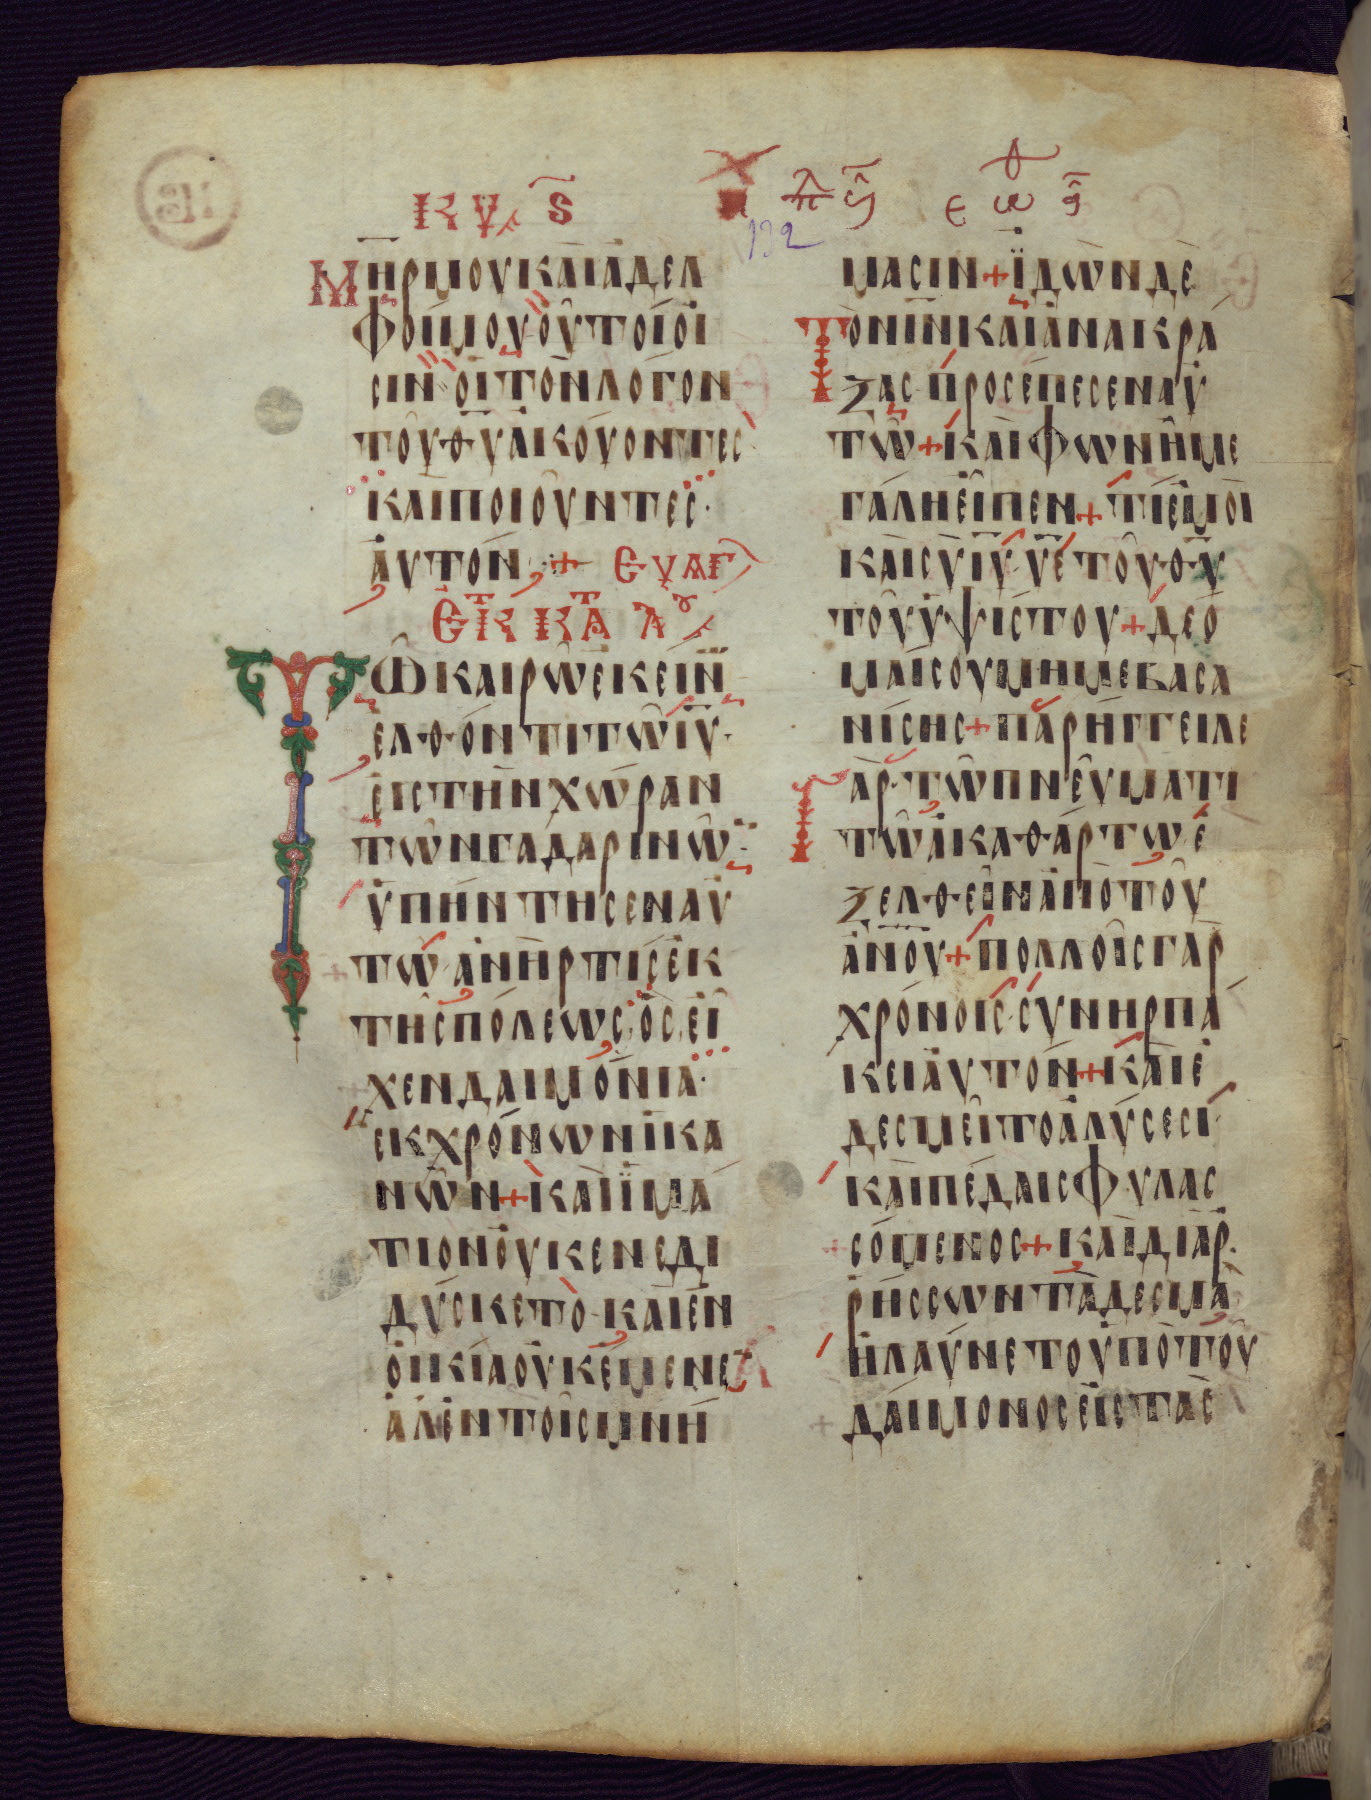 ΚΥ Ϛ
132
ΜΗΡ ΜΟΥ ΚΑΙ ΑΔΕΛ
ΦΟΙ ΜΟΥ ΟΥΤΟΙ ΟΙ
ΣΙΝ ΟΙ ΤΟΝ ΛΟΓΟΝ
ΤΟΥ ΘΥ ΑΚΟΥΟΝΤΕΣ
ΚΑΙ ΠΟΙΟΥΝΤΕΣ·
ΑΥΤΟΝ + ΕΥΑΓ
ΕΚ ΚΤΑ Λ
ΤΩ ΚΑΙΡΩ ΕΚΕΙΝ
ΕΛΘΟΝΤΙ ΤΩ ΙΥ·
ΕΙΣ ΤΗΝ ΧΩΡΑΝ
ΤΩΝ ΓΑΔΑΡΙΝΩ
ΥΠΗΝΤΗΣΕΝ ΑΥ
ΤΩ ΑΝΗΡ ΤΙΣ ΕΚ
ΤΗΣ ΠΟΛΕΩΣ, ΟΣ ΕΙ
ΧΕΝ ΔΑΙΜΟΝΙΑ·
ΕΚ ΧΡΟΝΩΝ ΙΚΑ
ΝΩΝ + ΚΑΙ ΙΜΑ
ΤΙΟΝ ΟΥΚ ΕΝΕΔΙ
ΔΥΣΚΕΤΟ· ΚΑΙ ΕΝ
ΟΙΚΙΑ ΟΥΚ ΕΜΕΝΕ
ΑΛ ΕΝ ΤΟΙΣ ΜΝΗ
ΜΑΣΙΝ + ΙΔΩΝ ΔΕ
ΤΟΝ ΙΝ ΚΑΙ ΑΝΑΚΡΑ
ΖΑΣ· ΠΡΟΣΕΠΕΣΕΝ ΑΥ
ΤΩ + ΚΑΙ ΦΩΝΗ ΜΕ
ΓΑΛΗ ΕΙΠΕΝ + ΤΙ ΕΜΟΙ
ΚΑΙ ΣΥ ΙΥ ΥΕ ΤΟΥ ΘΥ
ΤΟΥ ΥΨΙΣΤΟΥ + ΔΕΟ
ΜΑΙ ΣΟΥ ΜΗ ΜΕ ΒΑΣΑ
ΝΙΣΗΣ + ΠΑΡΗΓΓΕΙΛΕ
ΓΑΡ· ΤΩ ΠΝΕΥΜΑΤΙ
ΤΩ ΑΚΑΘΑΡΤΩ Ε
ΖΕΛΘΕΙΝ ΑΠΟ ΤΟΥ
ΑΝΟΥ + ΠΟΛΛΟΙΣ ΓΑΡ
ΧΡΟΝΟΙΣ· ΣΥΝΗΡΠΑ
ΚΕΙ ΑΥΤΟΝ + ΚΑΙ Ε
ΔΕΣΜΕΙΤΟ ΑΛΥΣΕΣΙ·
ΚΑΙ ΠΕΔΑΙΣ ΦΥΛΑΣ
ΣΟΜΕΝΟΣ + ΚΑΙ ΔΙΑΡ
ΡΗΣΣΩΝ ΤΑ ΔΕΣΜΑ
ΗΛΑΥΝΕΤΟ ΥΠΟ ΤΟΥ
ΔΑΙΜΟΝΟΣ ΕΙΣ ΤΑΣ